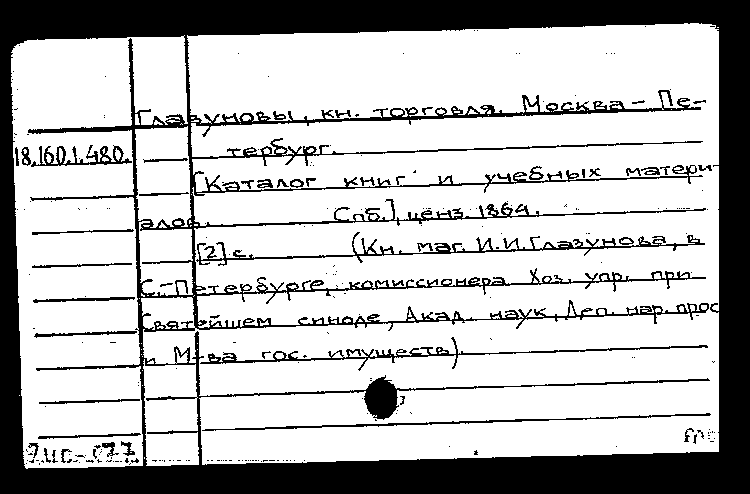 Глазуновы, кн. торговля. Москва - Пе-
18.160.1.480. тербург.
[Каталог книг и учебных матери-
алов. Спб.], ценз. 1864.
[2] с. (Кн. маг. И.И.Глазунова, в
С.-Петербурге, комиссионера Хоз. упр. при
Святейшем синоде, Акад. наук, Деп. нар. прос
и М-ва гос. имуществ).